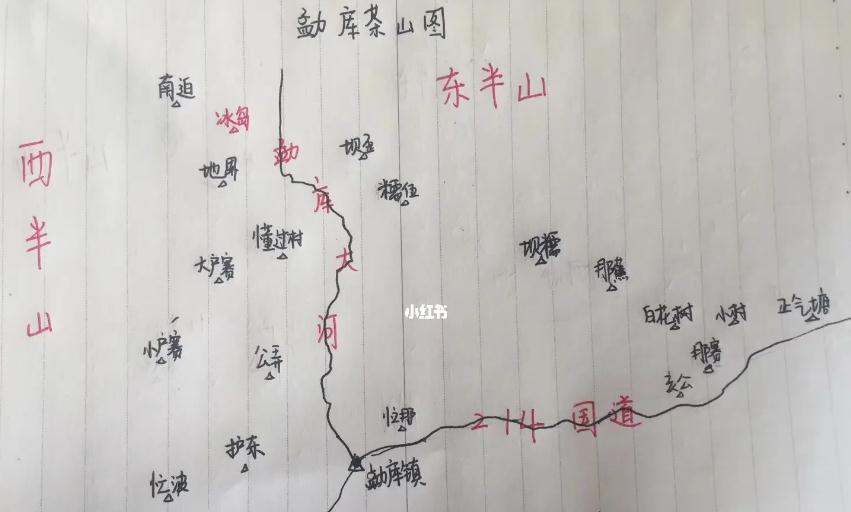 勐库茶山图
东半山
西半山
南迫
冰岛
地界
坝歪
糯伍
懂过村
大户赛
小户赛
公弄
护东
忙波
勐库大河
坝糯
那蕉
白花树
小村
正气塘
那赛
亥公
忙那
214国道
勐库镇
小红书